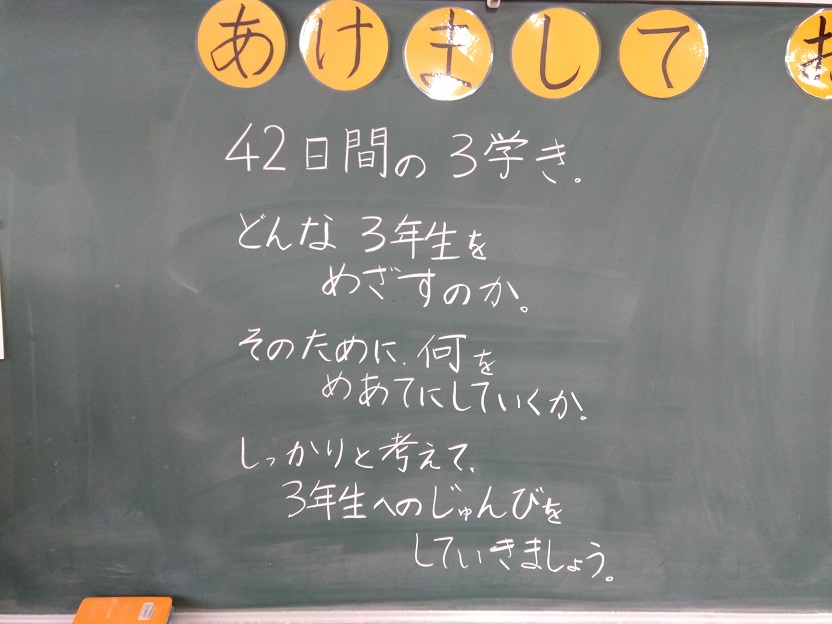 あけまして お
42日間の3学き。
どんな3年生を
めざすのか。
そのために、何を
めあてにしていくか。
しっかりと考えて、
3年生へのじゅんびを
していきましょう。